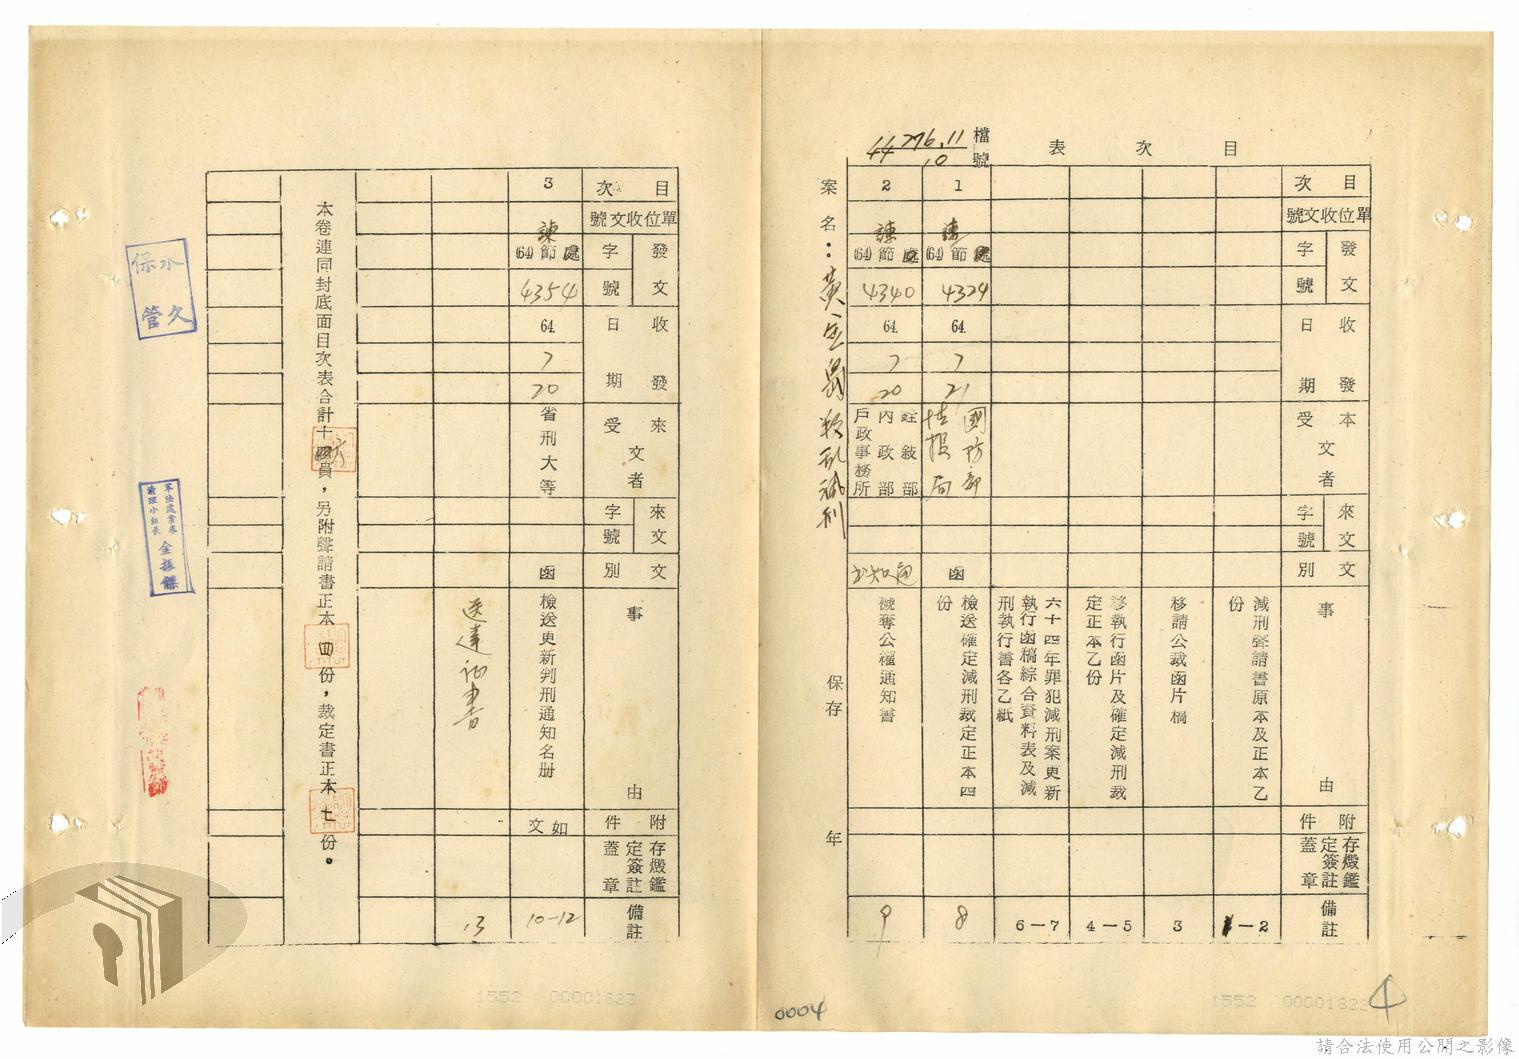 目次表
檔號
276.11
44
10
目次
單位收文號
發文
字
號
收發
日期
本文
受者
來文
字
號
文別
事由
附件
存燬鑑定簽註蓋章
備註
減刑聲請書原本及正本乙份
1-2
移請公裁函片稿
3
移執行函片及確定減刑裁定正本乙份
4-5
六十四年罪犯減刑案更新執行函稿綜合資料表及減刑執行書各乙紙
6-7
1
(64)節處
4324
64
7
21
國防部
情报局
函
檢送確定減刑裁定正本四份
8
2
諫
(64)節處
4340
64
7
20
銓敍部
內政部
戶政事務所
通知书
褫奪公權通知書
9
案名:
保存
年
0004
1552 00001822
目次
單位收文號
發文
字
號
收發
日期
來文
受者
來文
字
號
文別
事由
附件
存燬鑑定簽註蓋章
備註
3
諫
(64)節處
4354
64
7
20
省刑大等
函
檢送更新判刑通知名册
如文
10-12
送達证書
13
本卷連同封底面目次表合計十四員,另附聲請書正本四份,裁定書正本七份。
永久保管
軍法處案卷清理小組長
1552 00001823
請合法使用公開之影像